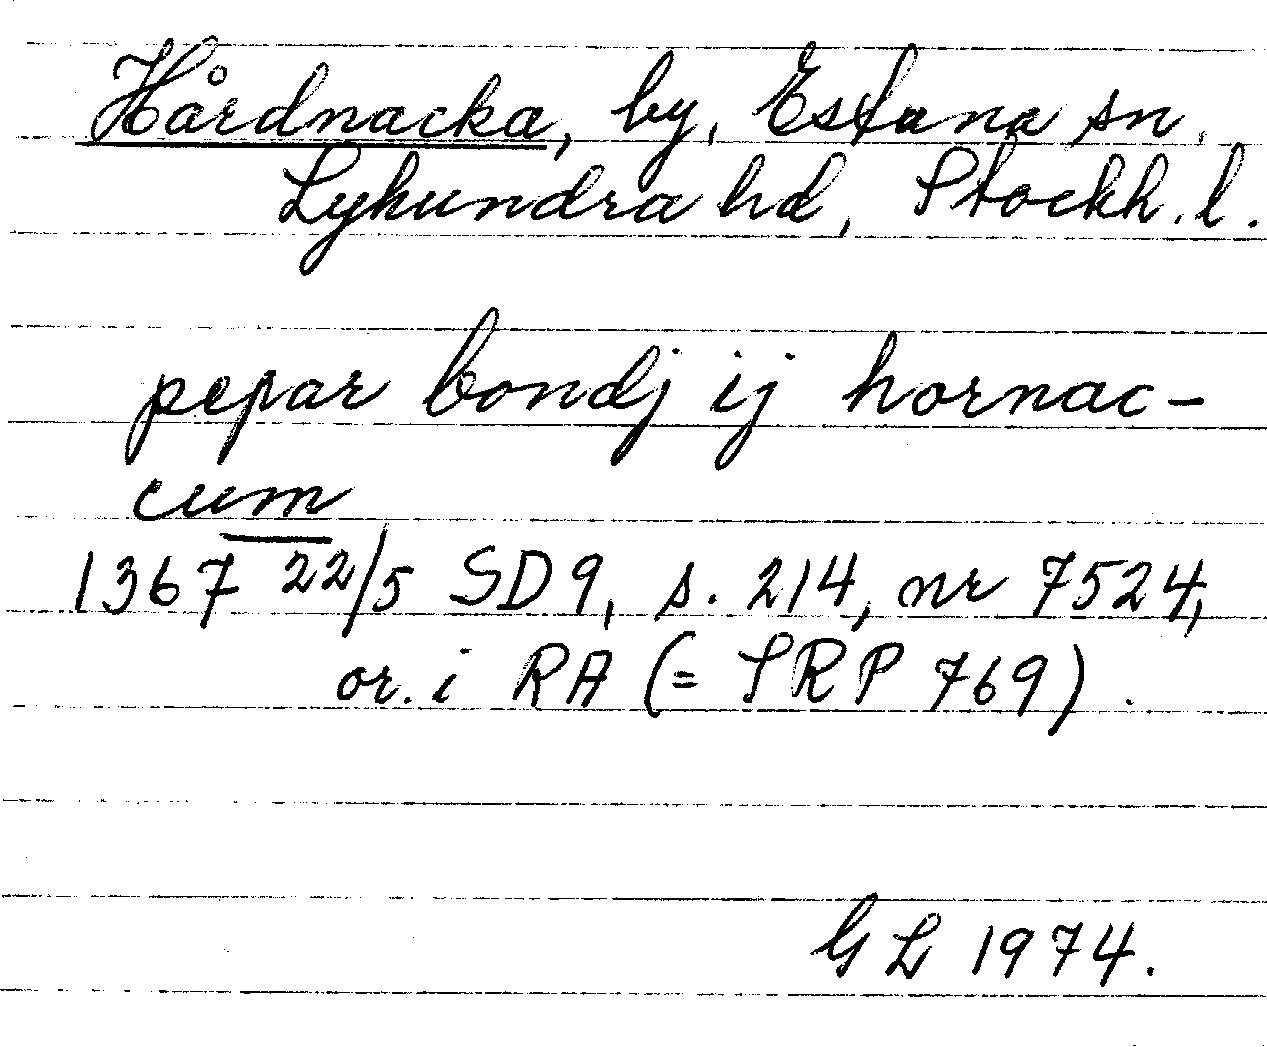 Hårdnacka, by, Estuna sn,
Lyhundra hd, Stockh. l.
pepar bondj ij hornac-
cum
1367 22/5 SD 9, s. 214, nr 7524,
or. i RA (= SRP 769).
GL 1974.